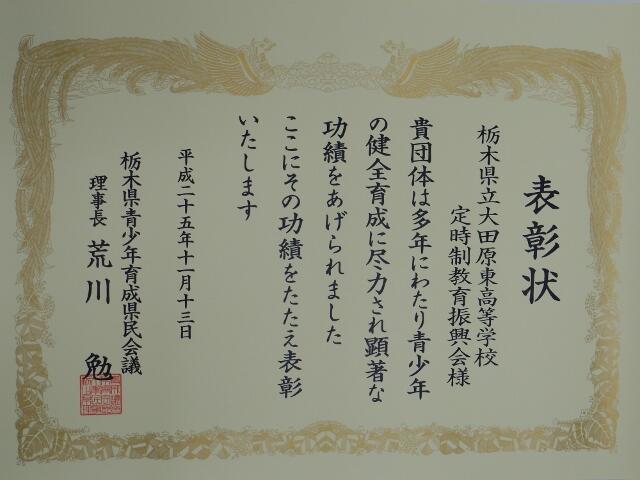 表彰状
栃木県立大田原東高等学校
定時制教育振興会様
貴団体は多年にわたり青少年
の健全育成に尽力され顕著な
功績をあげられました
ここにその功績をたたえ表彰
いたします
平成二十五年十一月十三日
栃木県青少年育成県民会議
理事長 荒川 勉